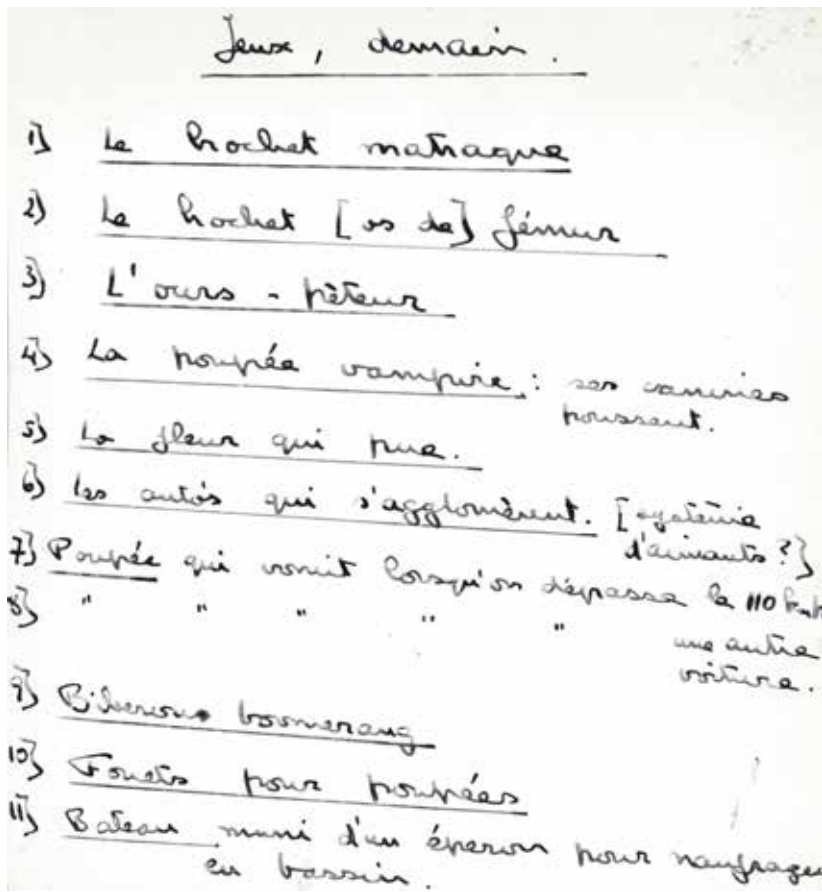 Jeux, demain.
1) Le hochet matraque
2) Le hochet [os de] fémur
3) L'ours - péteur
4) La poupée vampire : ses canines
poussent.
5) La fleur qui pue.
6) Les autos qui s'agglomèrent. [système
d'aimants ?]
7) Poupée qui vomit lorsqu'on dépasse le 110 km
8) " " " " " une autre
voiture.
9) Biberons boomerang
10) Fouets pour poupées
11) Bateau muni d'un éperon pour naufrages
en bassin.